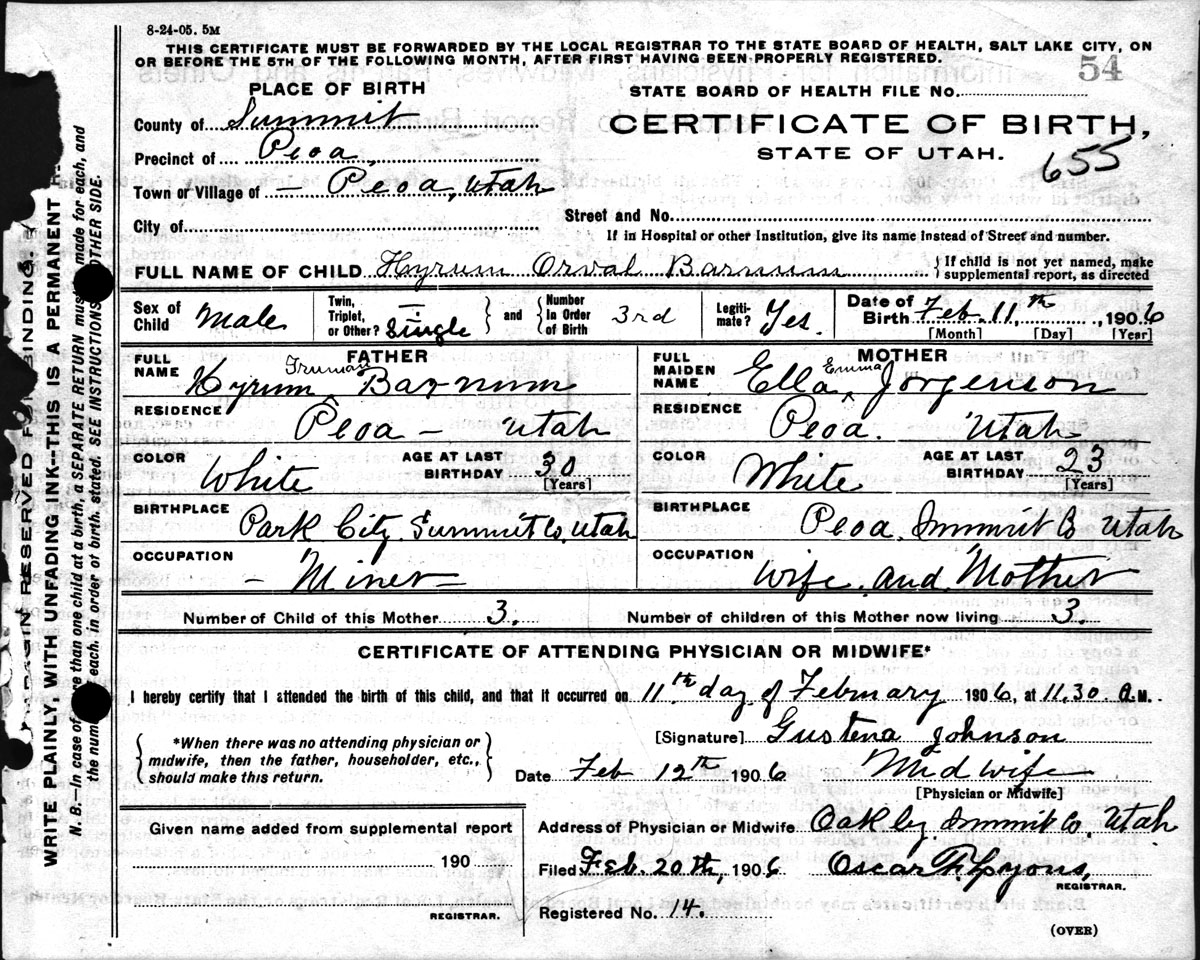 8-24-05. 5M
THIS CERTIFICATE MUST BE FORWARDED BY THE LOCAL REGISTRAR TO THE STATE BOARD OF HEALTH, SALT LAKE CITY, ON
OR BEFORE THE 5TH OF THE FOLLOWING MONTH, AFTER FIRST HAVING BEEN PROPERLY REGISTERED.
54
PLACE OF BIRTH
STATE BOARD OF HEALTH FILE No.
County of Summit
CERTIFICATE OF BIRTH,
Precinct of Peoa,
STATE OF UTAH.
655
Town or Village of — Peoa, Utah
Street and No.
City of
If in Hospital or other Institution, give its name instead of Street and number.
FULL NAME OF CHILD Hyrum Orval Barnum { If child is not yet named, make
supplemental report, as directed
Sex of Child Male
Twin, Triplet, or Other? — Single } and { Number In Order of Birth 3rd
Legitimate? Yes.
Date of Birth Feb. 11,th, 1906
[Month] [Day] [Year]
FATHER
FULL NAME Hyrum ^ Truman Barnum
RESIDENCE Peoa — Utah
COLOR White AGE AT LAST BIRTHDAY 30
[Years]
BIRTHPLACE Park City, Summit Co, Utah
OCCUPATION — Miner —
MOTHER
FULL MAIDEN NAME Ella ^ Emma Jorgenson
RESIDENCE Peoa. Utah
COLOR White AGE AT LAST BIRTHDAY 23
[Years]
BIRTHPLACE Peoa, Summit Co Utah
OCCUPATION Wife and Mother
Number of Child of this Mother 3. Number of children of this Mother now living 3.
CERTIFICATE OF ATTENDING PHYSICIAN OR MIDWIFE*
I hereby certify that I attended the birth of this child, and that it occurred on 11th day of February 1906, at 11.30 a.M.
{ *When there was no attending physician or
midwife, then the father, householder, etc.,
should make this return. }
[Signature] Gustena Johnson
Date Feb 12th 1906 Midwife
[Physician or Midwife]
Given name added from supplemental report
190
REGISTRAR.
Address of Physician or Midwife Oakley, Summit Co, Utah
Filed Feb. 20th, 1906 Oscar F. Lyons,
REGISTRAR.
Registered No. 14.
(OVER)
MARGIN RESERVED FOR BINDING.
WRITE PLAINLY, WITH UNFADING INK--THIS IS A PERMANENT
N. B.—In case of more than one child at a birth, a SEPARATE RETURN must be made for each, and
the number of each, in order of birth, stated. SEE INSTRUCTIONS ON OTHER SIDE.